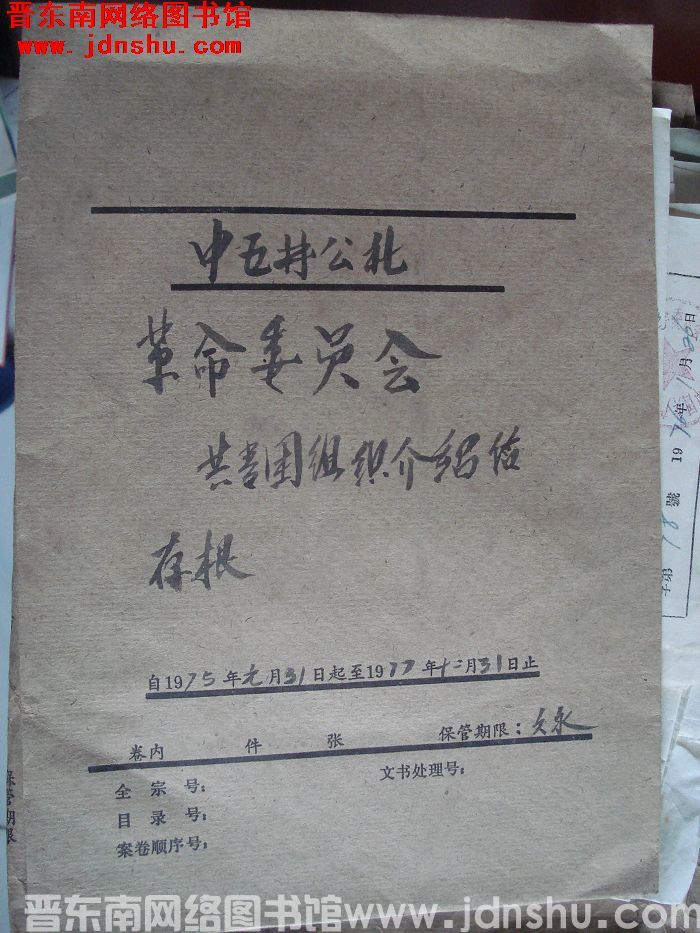 晋东南网络图书馆
www.jdnshu.com
中五井公社
革命委员会
共青团组织介绍信
存根
自1975年元月31日起至1977年十二月31日止
卷内 件 张 保管期限：久永
全宗号： 文书处理号：
目录号：
案卷顺序号：
保管期限
1976年1月20日
字第 78 號
晋东南网络图书馆www.jdnshu.com